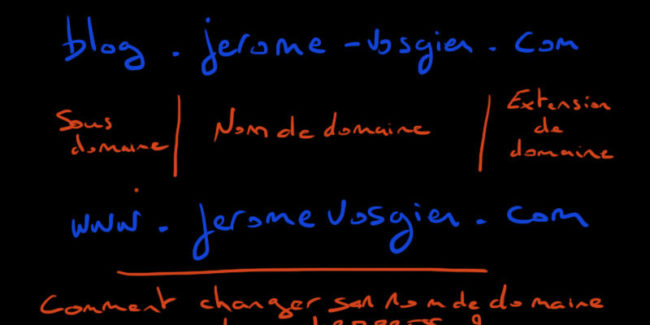 blog . jerome-vosgien . com
Sous domaine | Nom de domaine | Extension de domaine
www . jeromevosgien . com
Comment changer son nom de domaine